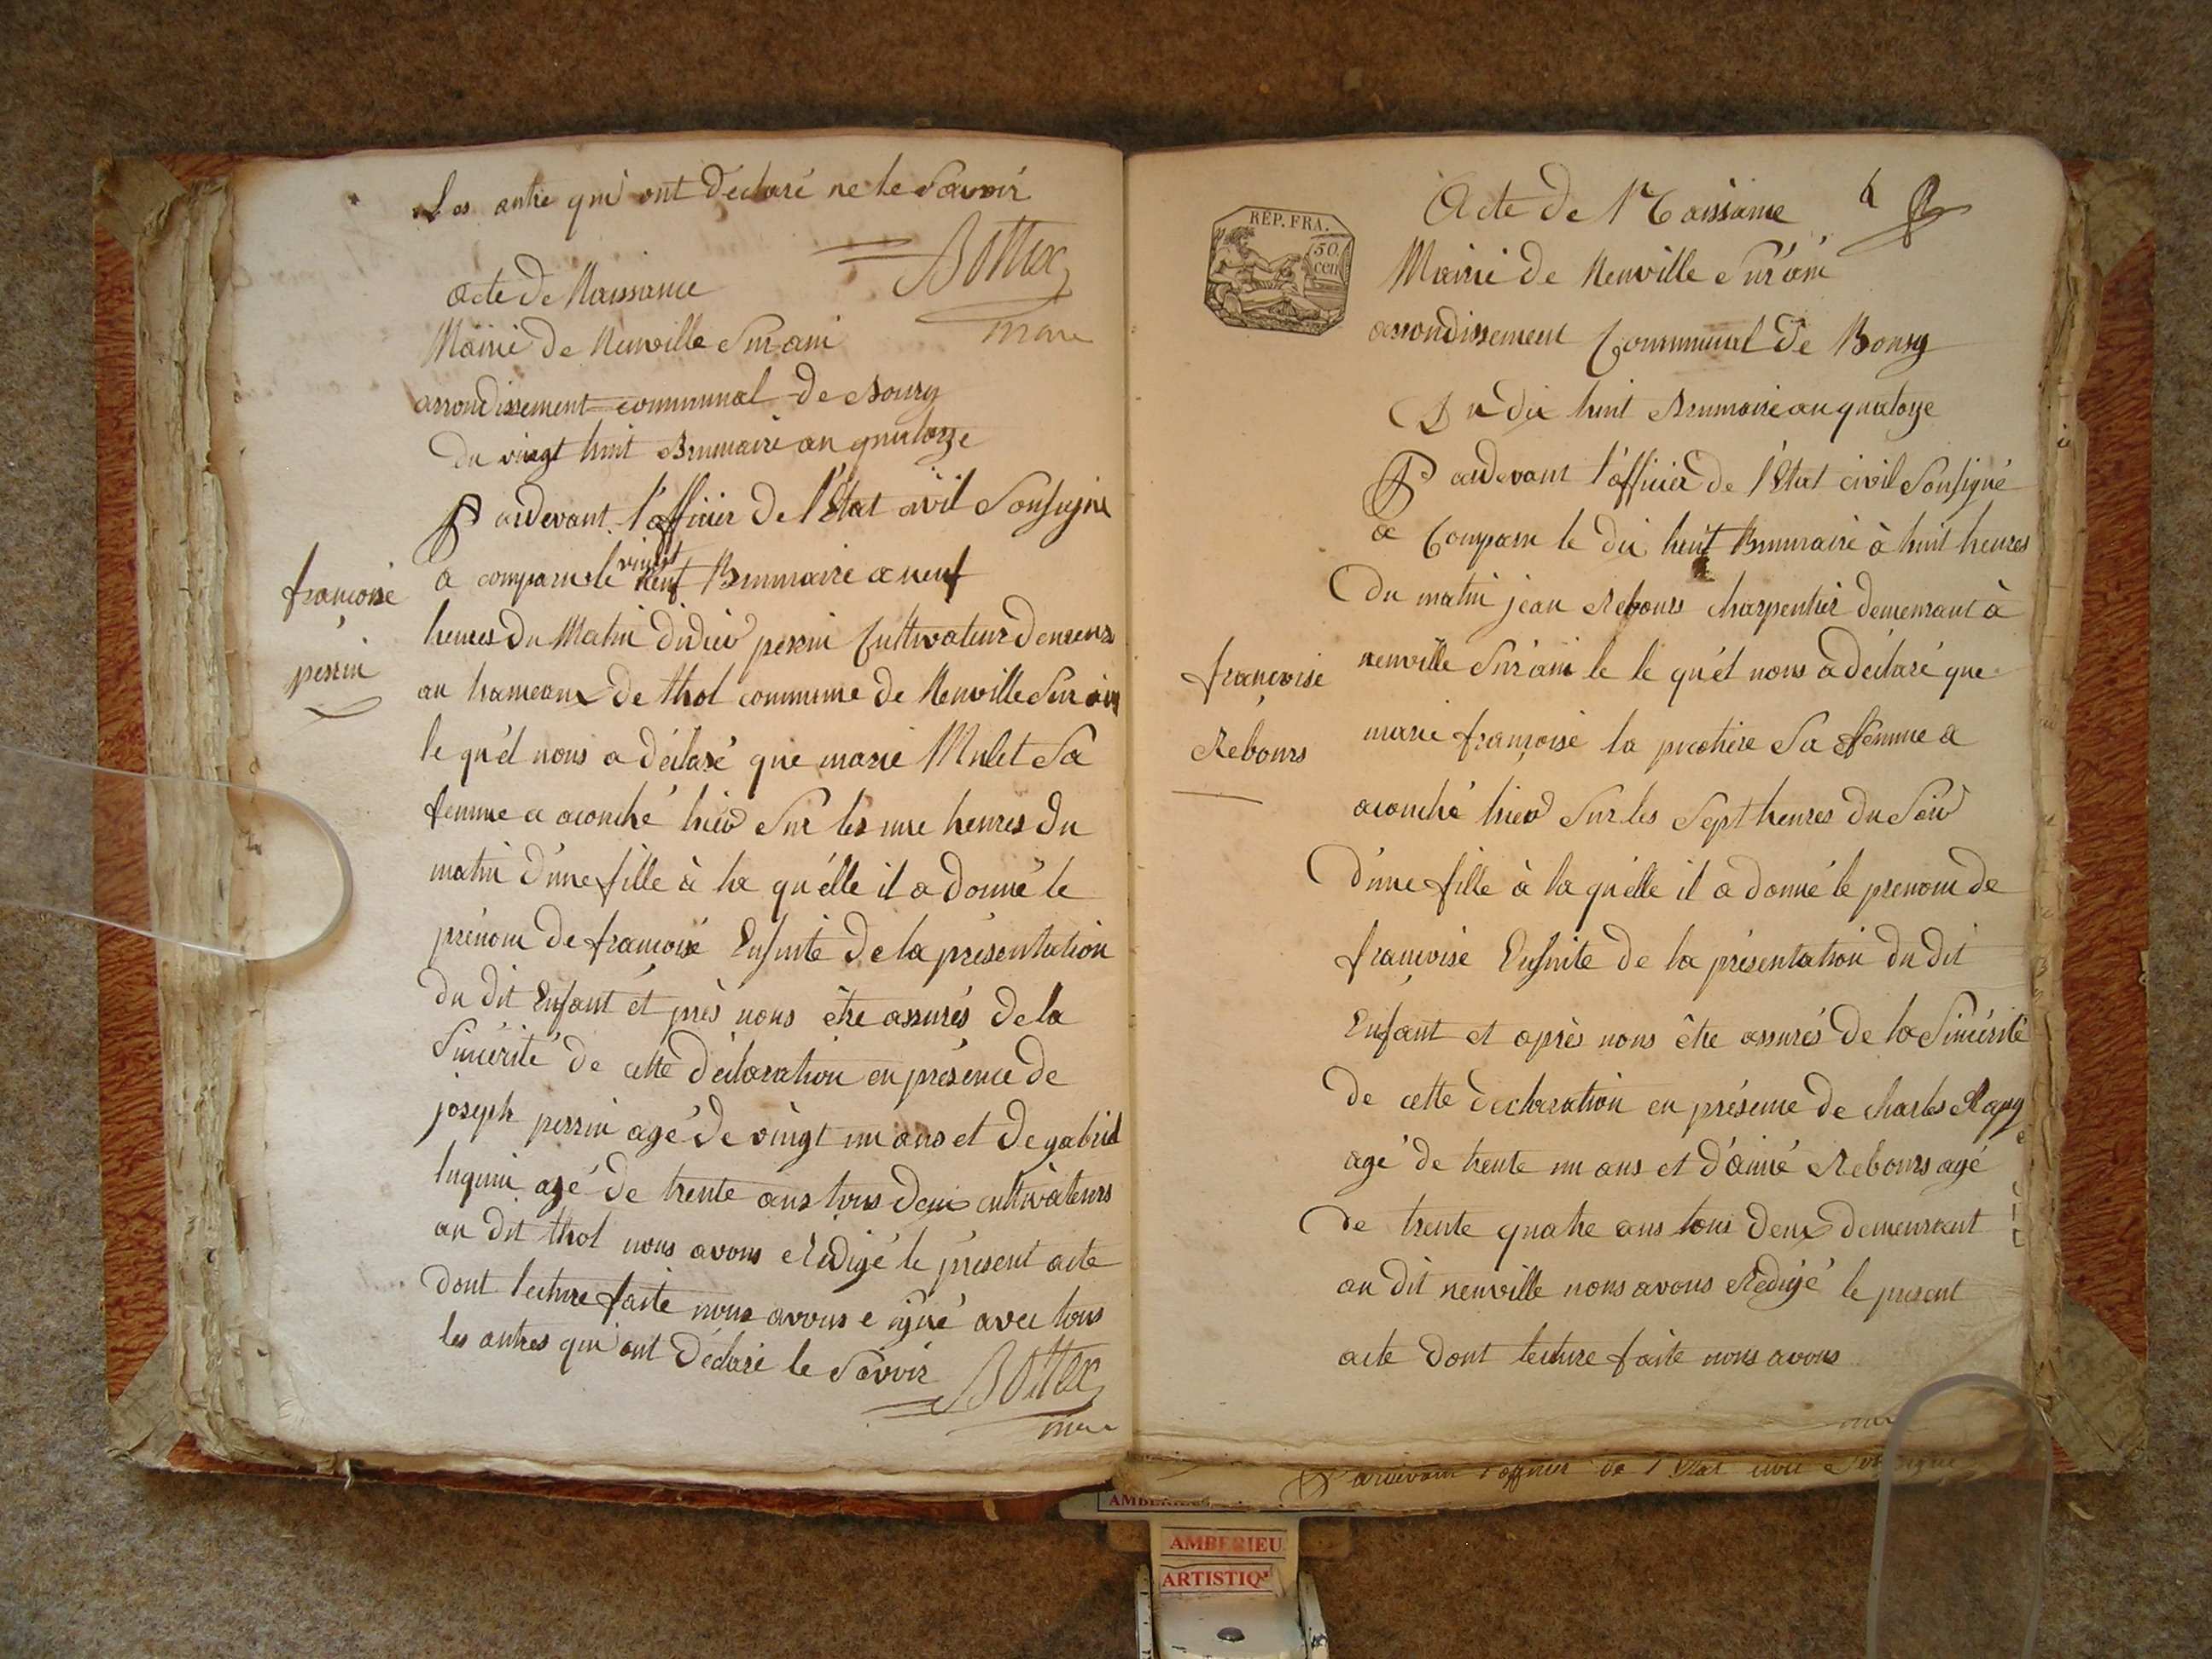 Les autre qui ont déclaré ne le Savoir
Bottex
maire
acte de Naissance
Mairie de Neuville Sur ain
arrondissement communal de Bourg
du vingt huit Brumaire an quatorze
Pardevant l'officier de l'Etat civil Sousigné
a comparu le vingt neuf Brumaire a neuf
heures du Matin didier perrin Cultivateur demeura
au hameaux de thol commune de Neuville Sur ain
le qu'él nous a déclaré que marie Mulet Sa
femme a acouché hier Sur les une heures du
matin d'une fille à la qu'élle il a donné le
prénom de francoise Ensuite de la présentation
du dit Enfant ét près nous être assurés de la
Sincérité de cette déclaration en présence de
joseph perrin agé de vingt un ans et de gabriel
luquin agé de trente ans tous deux cultivateurs
au dit thol nous avons Rédigé le présent acte
dont lecture faite nous avons signé avec tous
les autres qui ont déclaré le Savoir
Bottex
maire
françoise
perrin
Acte de Naissance
6
REP. FRA.
50 cen
Mairie de Neuville Sur ain
arrondissement Communal de Bourg
Du dix huit Brumaire an quatorze
Pardevant l'officier de l'Etat civil Sousigné
a Comparu le dix huit Brumaire à huit heures
du matin jean Rebours charpentier demeurant à
neuville Sur ain le le qu'él nous a déclaré que
marie françoise la Sa femme a
acouché hier Sur les Sept heures du Soir
d'une fille à la qu'elle il a donné le prenom de
françoise Ensuite de la présentation du dit
Enfant et après nous être assurés de la Sincérité
de cette déclaration en présence de charles
agé de trente un ans et d'aimé Rebours agé
de trente quatre ans tous deux demeurant
au dit neuville nous avons Rédigé le present
acte dont lecture faite nous avons
françoise
Rebours
Pardevant l'officier de l'Etat civil Sousigné
AMBERIEU
AMBERIEU
ARTISTIQ